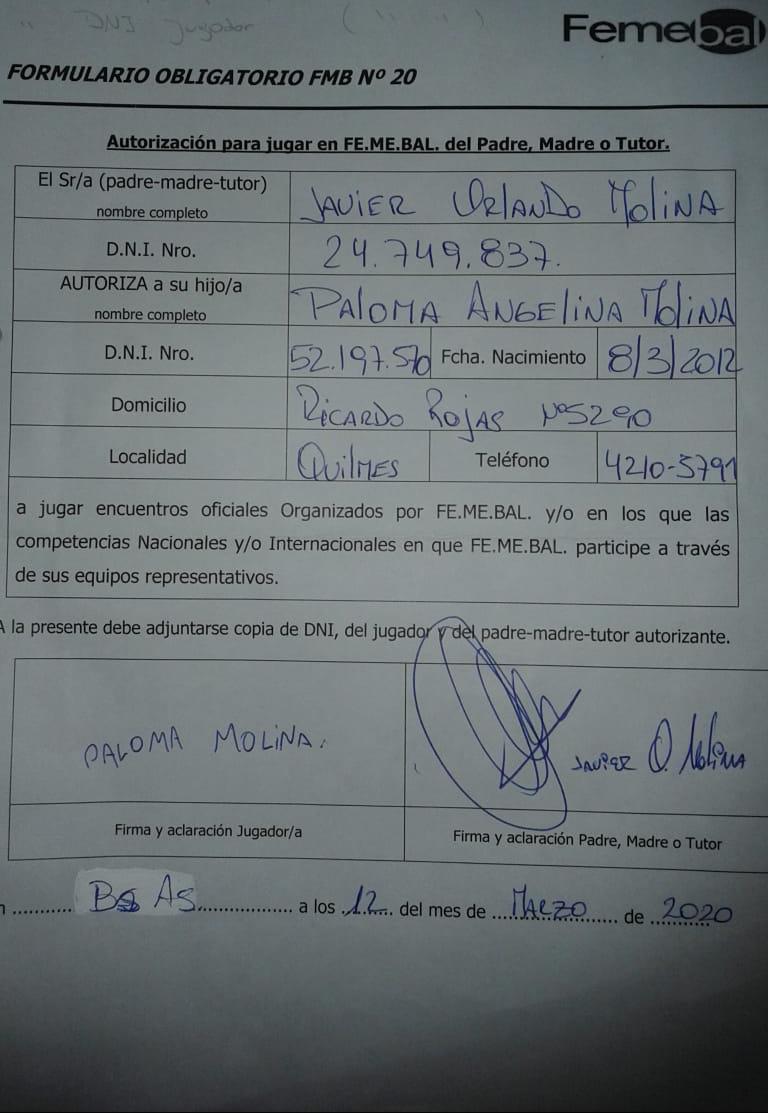 DNI Jugador
Femebal
FORMULARIO OBLIGATORIO FMB Nº 20
Autorización para jugar en FE.ME.BAL. del Padre, Madre o Tutor.
El Sr/a (padre-madre-tutor)
nombre completo
JAVIER ORLANDO MOLINA
D.N.I. Nro.
24.749.837.
AUTORIZA a su hijo/a
nombre completo
PALOMA ANGELINA MOLINA
D.N.I. Nro. 52.197.570 Fcha. Nacimiento 8/3/2012
Domicilio RICARDO ROJAS Nº5290
Localidad QUILMES Teléfono 4210-5791
a jugar encuentros oficiales Organizados por FE.ME.BAL. y/o en los que las
competencias Nacionales y/o Internacionales en que FE.ME.BAL. participe a través
de sus equipos representativos.
A la presente debe adjuntarse copia de DNI, del jugador y del padre-madre-tutor autorizante.
PALOMA MOLINA.
JAVIER O. Molina
Firma y aclaración Jugador/a
Firma y aclaración Padre, Madre o Tutor
............ Bs As.................. a los .12.... del mes de ... MARZO ...... de ..2020